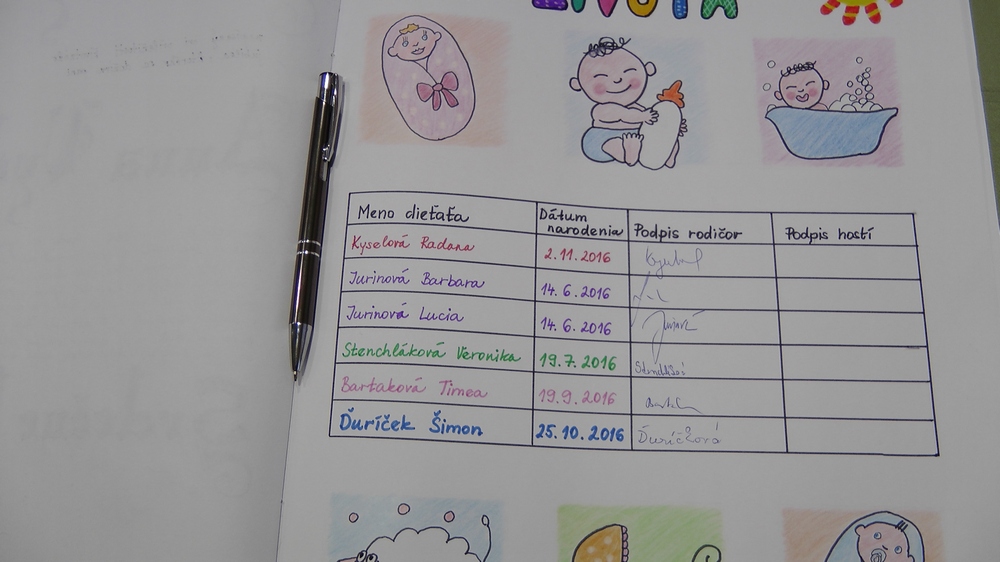 ŽIVOTA
Meno dieťaťa Dátum narodenia Podpis rodičov Podpis hostí
Kyselová Radana 2.11.2016
Jurinová Barbara 14.6.2016
Jurinová Lucia 14.6.2016
Stenchláková Veronika 19.7.2016
Bartaková Timea 19.9.2016
Ďuríček Šimon 25.10.2016 Ďuríčková